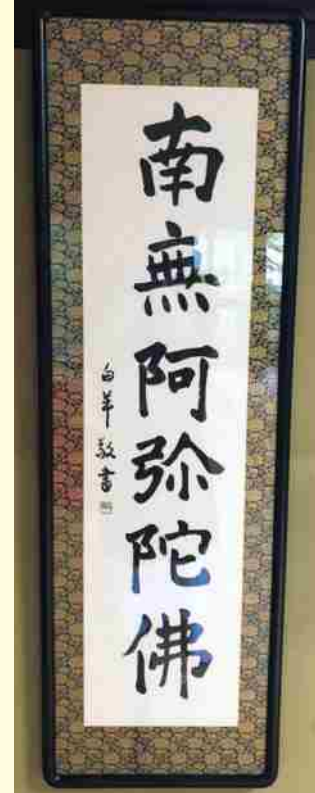 南無阿弥陀佛
白羊敬書